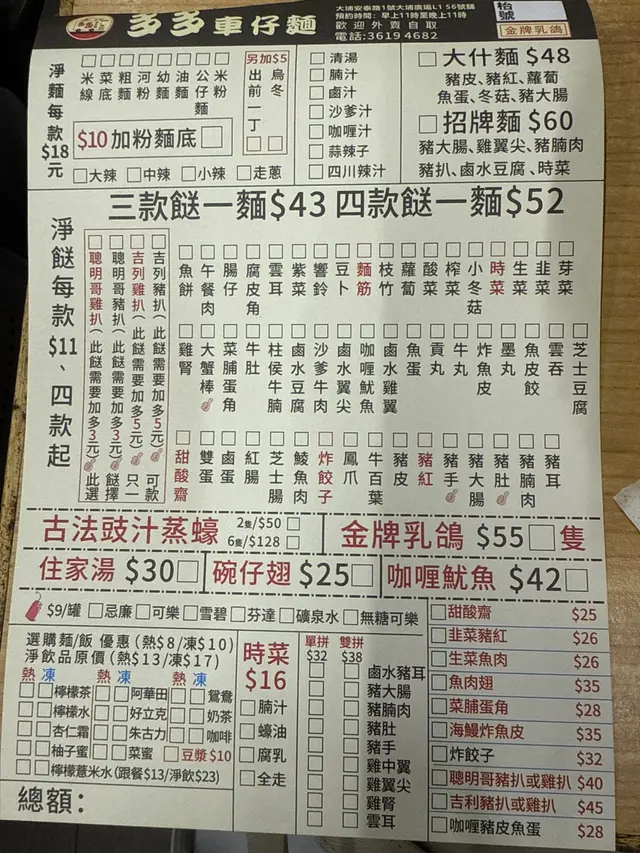 多多車仔麵
大埔安泰路1號大埔廣場L1 56號舖
預約時間：早上11時至晚上11時
歡迎外賣自取
電話:3619 4682
枱號
金牌乳鴿
淨麵每款$18元
米線
菜底
粗麵
河粉
幼麵
油麵
公仔麵
米粉
另加$5
出前一丁
烏冬
$10加粉麵底
大辣 中辣 小辣 走蔥
清湯
腩汁
鹵汁
沙爹汁
咖喱汁
蒜辣子
四川辣汁
大什麵 $48
豬皮、豬紅、蘿蔔
魚蛋、冬菇、豬大腸
招牌麵 $60
豬大腸、雞翼尖、豬腩肉
豬扒、鹵水豆腐、時菜
三款餸一麵$43 四款餸一麵$52
淨餸每款$11、四款起
聰明哥雞扒(此餸需要加多3元)
聰明哥豬扒(此餸需要加多3元)
吉列雞扒(此餸需要加多5元)
吉列豬扒(此餸需要加多5元)
此選餸擇只一可款
魚餅
午餐肉
腸仔
腐皮角
雲耳
紫菜
響鈴
豆卜
麵筋
枝竹
蘿蔔
酸菜
榨菜
小冬菇
時菜
生菜
韭菜
芽菜
雞腎
大蟹棒
菜脯蛋角
牛肚
柱侯牛腩
鹵水豆腐
沙爹牛肉
鹵水翼尖
咖喱魷魚
鹵水雞翼
魚蛋
貢丸
牛丸
炸魚皮
墨丸
魚皮餃
雲吞
芝士豆腐
甜酸齋
雙蛋
鹵蛋
紅腸
芝士腸
鯪魚肉
炸餃子
鳳爪
牛百葉
豬皮
豬紅
豬手
豬大腸
豬肚
豬腩肉
豬耳
古法豉汁蒸蠔 2隻/$50
6隻/$128
金牌乳鴿 $55 隻
住家湯 $30 碗仔翅 $25 咖喱魷魚 $42
$9/罐 忌廉 可樂 雪碧 芬達 礦泉水 無糖可樂
選購麵/飯 優惠(熱$8/凍$10)
淨飲品原價(熱$13/凍$17)
熱 凍 熱 凍 熱 凍
檸檬茶 阿華田 鴛鴦
檸檬水 好立克 奶茶
杏仁霜 朱古力 咖啡
柚子蜜 菜蜜 豆漿$10
檸檬薏米水(跟餐$13/淨飲$23)
總額：
時菜
$16
腩汁
蠔油
腐乳
全走
單拼 雙拼
$32 $38
鹵水豬耳
豬大腸
豬腩肉
豬肚
豬手
雞中翼
雞翼尖
雞腎
雲耳
甜酸齋 $25
韭菜豬紅 $26
生菜魚肉 $26
魚肉翅 $35
菜脯蛋角 $28
海鰻炸魚皮 $35
炸餃子 $32
聰明哥豬扒或雞扒 $40
吉利豬扒或雞扒 $45
咖喱豬皮魚蛋 $28